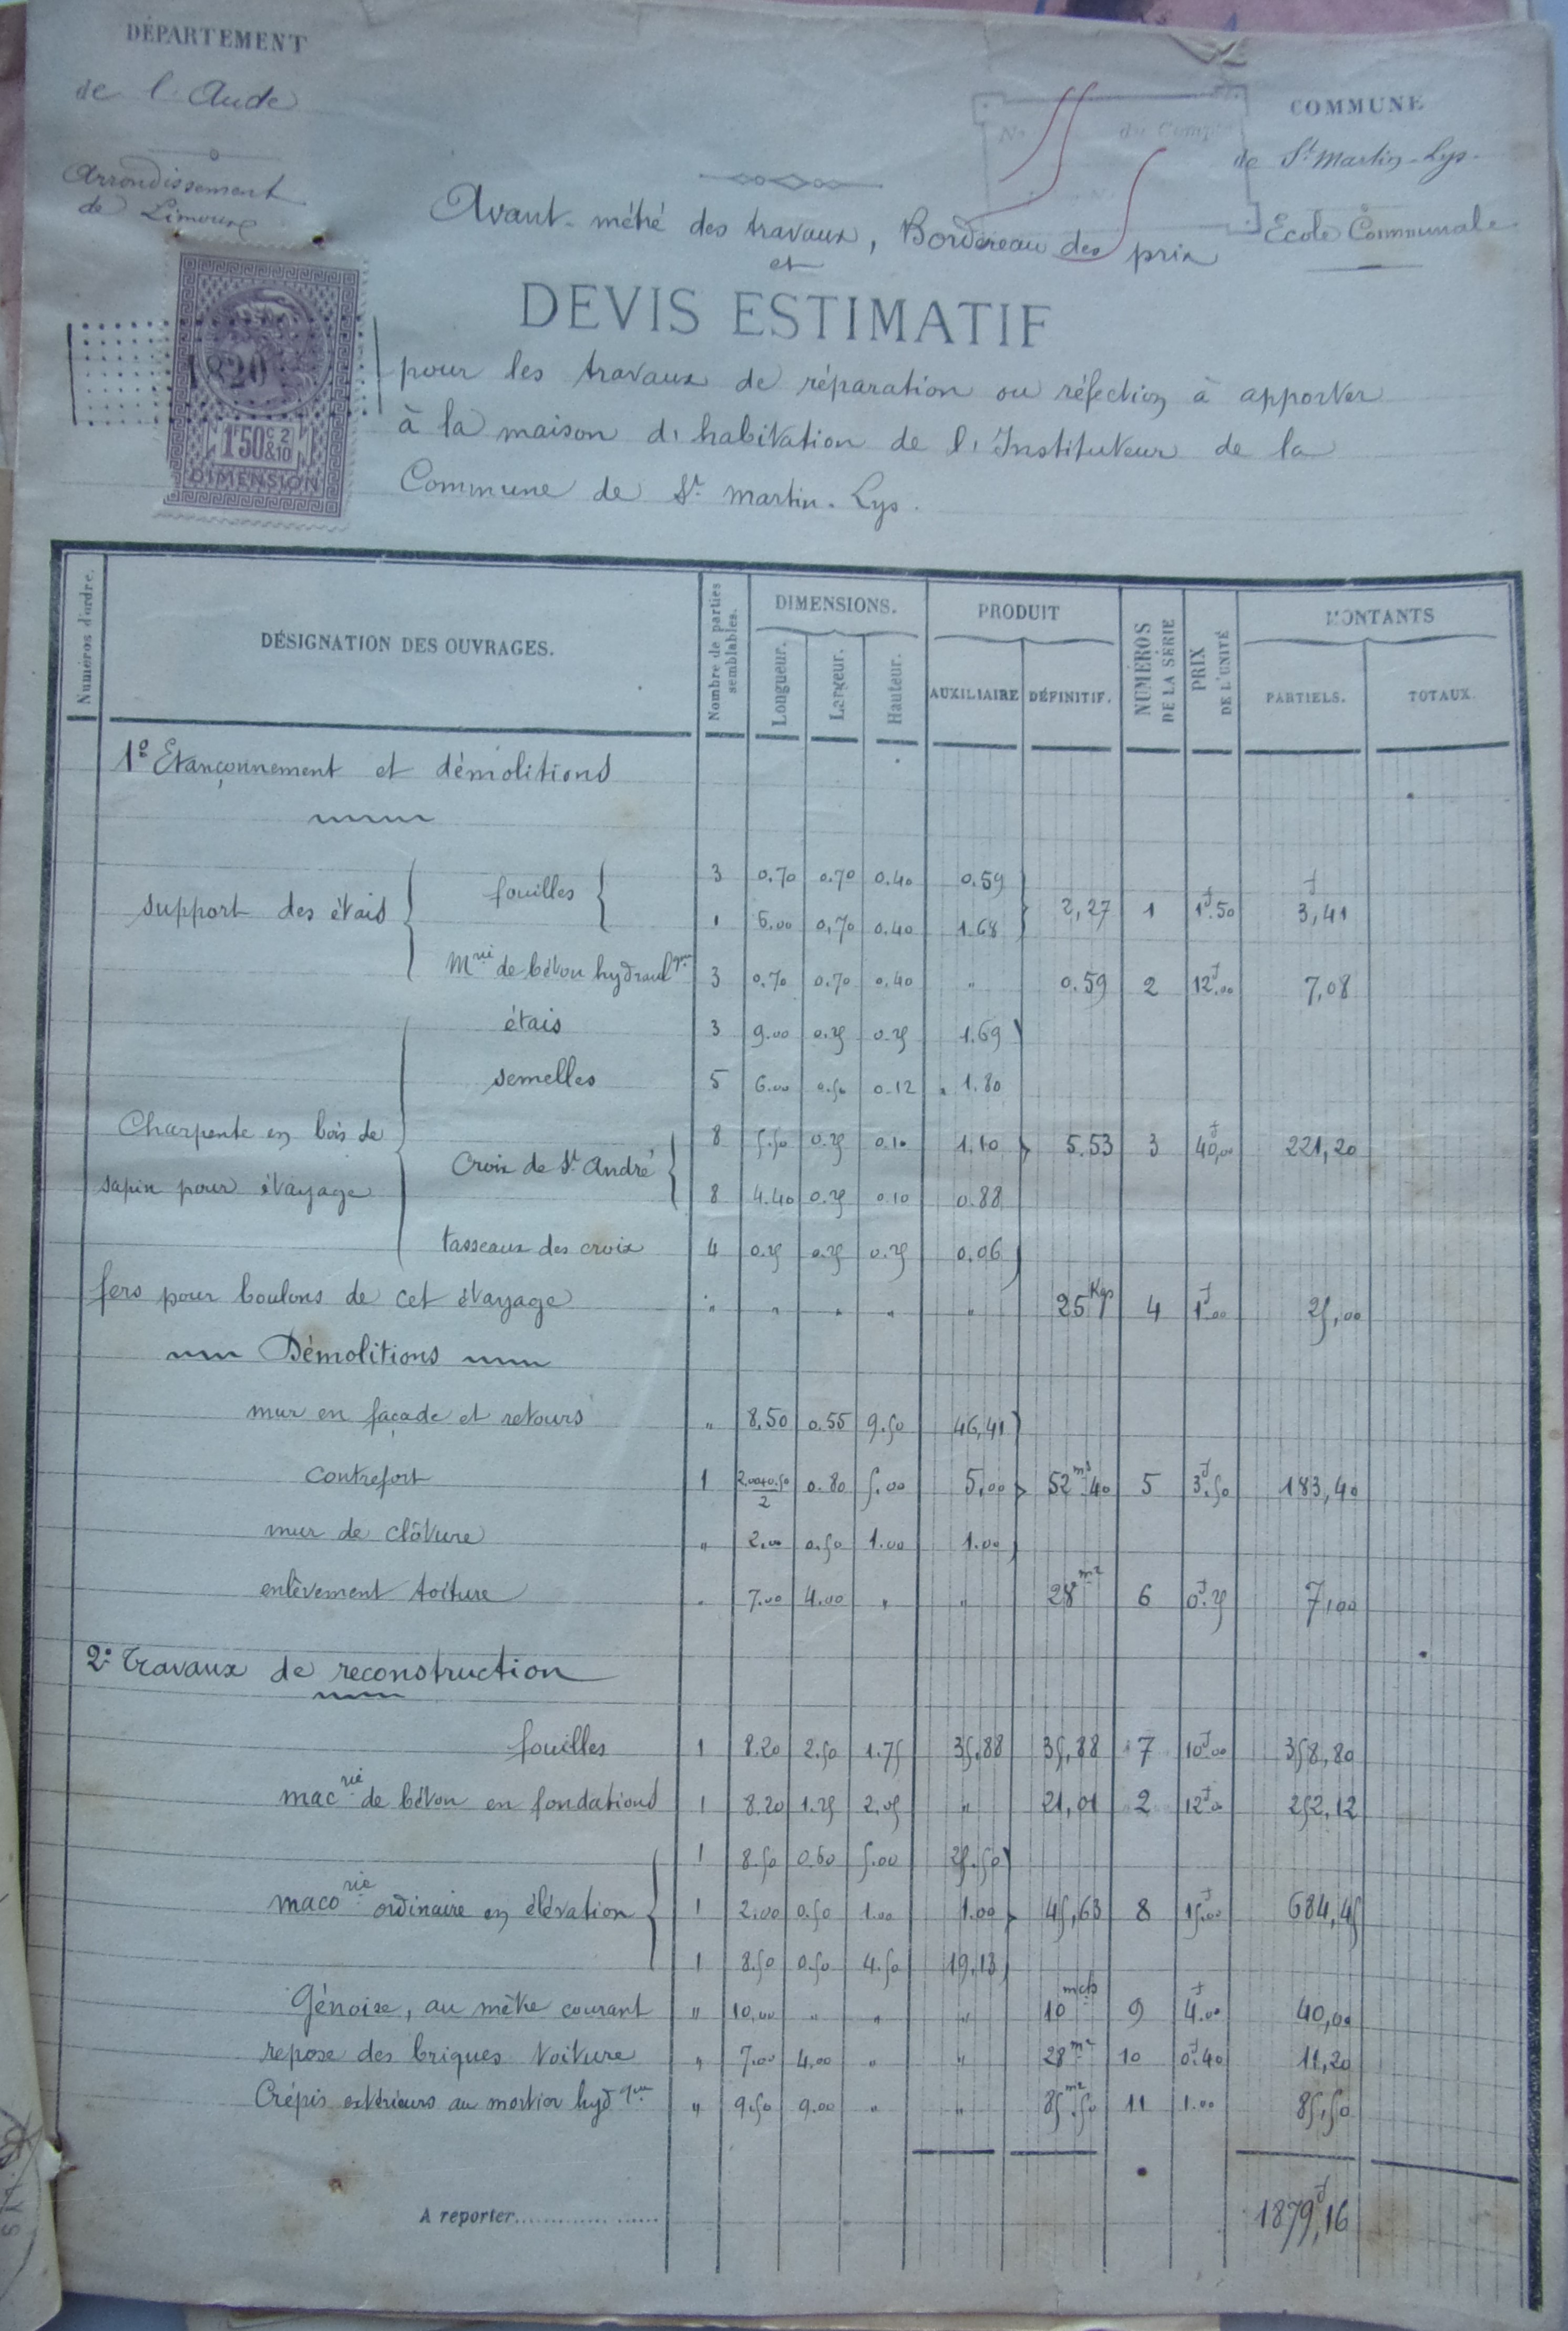 DÉPARTEMENT
de l'Aude
Arrondissement
de Limoux
COMMUNE
de St Martin-Lys.
Ecole Communale
No du Comp
Avant-métré des travaux, Bordereau des prix
et
DEVIS ESTIMATIF
pour les travaux de réparation ou réfection à apporter
à la maison d'habitation de l'Instituteur de la
Commune de St Martin-Lys.
1820
1F50c 2 &10
DIMENSION
Numéros d'ordre. DÉSIGNATION DES OUVRAGES. Nombre de parties semblables. DIMENSIONS. PRODUIT NUMÉROS DE LA SÉRIE PRIX DE L'UNITÉ MONTANTS
Longueur. Largeur. Hauteur. AUXILIAIRE DÉFINITIF. PARTIELS. TOTAUX.
1º Etançonnement et démolitions
support des étais fouilles 3 0.70 0.70 0.40 0.59
1 6.00 0,70 0.40 1.68 2,27 1 1f.50 3,41
Mrie de béton hydraulque 3 0.70 0.70 0.40 " 0.59 2 12f.00 7,08
étais 3 9.00 0.25 0.25 1.69
semelles 5 6.00 0.50 0.12 1.80
Charpente en bois de
sapin pour étayage
Croix de St André 8 5.50 0.25 0.10 1.10 5.53 3 40f,00 221,20
8 4.40 0.25 0.10 0.88
tasseaux des croix 4 0.25 0.25 0.25 0.06
fers pour boulons de cet étayage " " " " " 25 Kgs 4 1f.00 25,00
Démolitions
mur en façade et retours " 8,50 0.55 9.50 46,41
Contrefort 1 2.00+0.50/2 0.80 5.00 5,00 52m3.40 5 3f.50 183,40
mur de clôture " 2.00 0.50 1.00 1.00
enlèvement toiture " 7.00 4.00 " " 28m2 6 0f.25 7,00
2º Travaux de reconstruction
fouilles 1 8.20 2.50 1.75 35.88 35,88 7 10f.00 358,80
macrie de béton en fondations 1 8.20 1.25 2.05 " 21,01 2 12f.00 252,12
1 8.50 0.60 5.00 25.50
macorie ordinaire en élévation 1 2.00 0.50 1.00 1.00 45,63 8 15f.00 684,45
1 8.50 0.50 4.50 19,13
Génoise, au mètre courant " 10,00 " " " 10 mets 9 4f.00 40,00
repose des briques toiture " 7.00 4,00 " " 28m2 10 0f.40 11,20
Crépis extérieurs au mortier hydque " 9.50 9.00 " " 85m2.50 11 1.00 85,50
A reporter................... 1879f,16